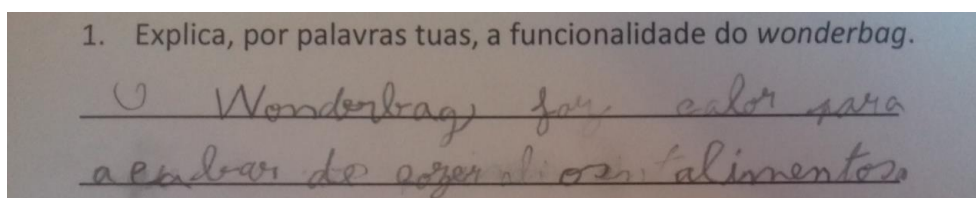 1. Explica, por palavras tuas, a funcionalidade do wonderbag.
O Wonderbag faz calor para
acabar de cozer os alimentos.